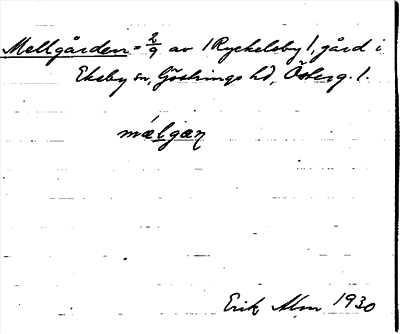 Mellgården = 2/9 av (Ryckelsby), gård i
Ekeby sn, Göstrings hd, Österg. l.
mælgan
Erik Alm 1930